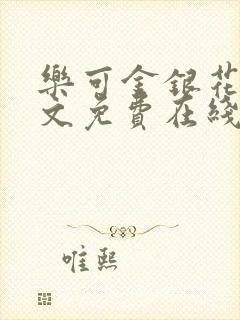 樂可金銀花
文免費在綫
唯熙